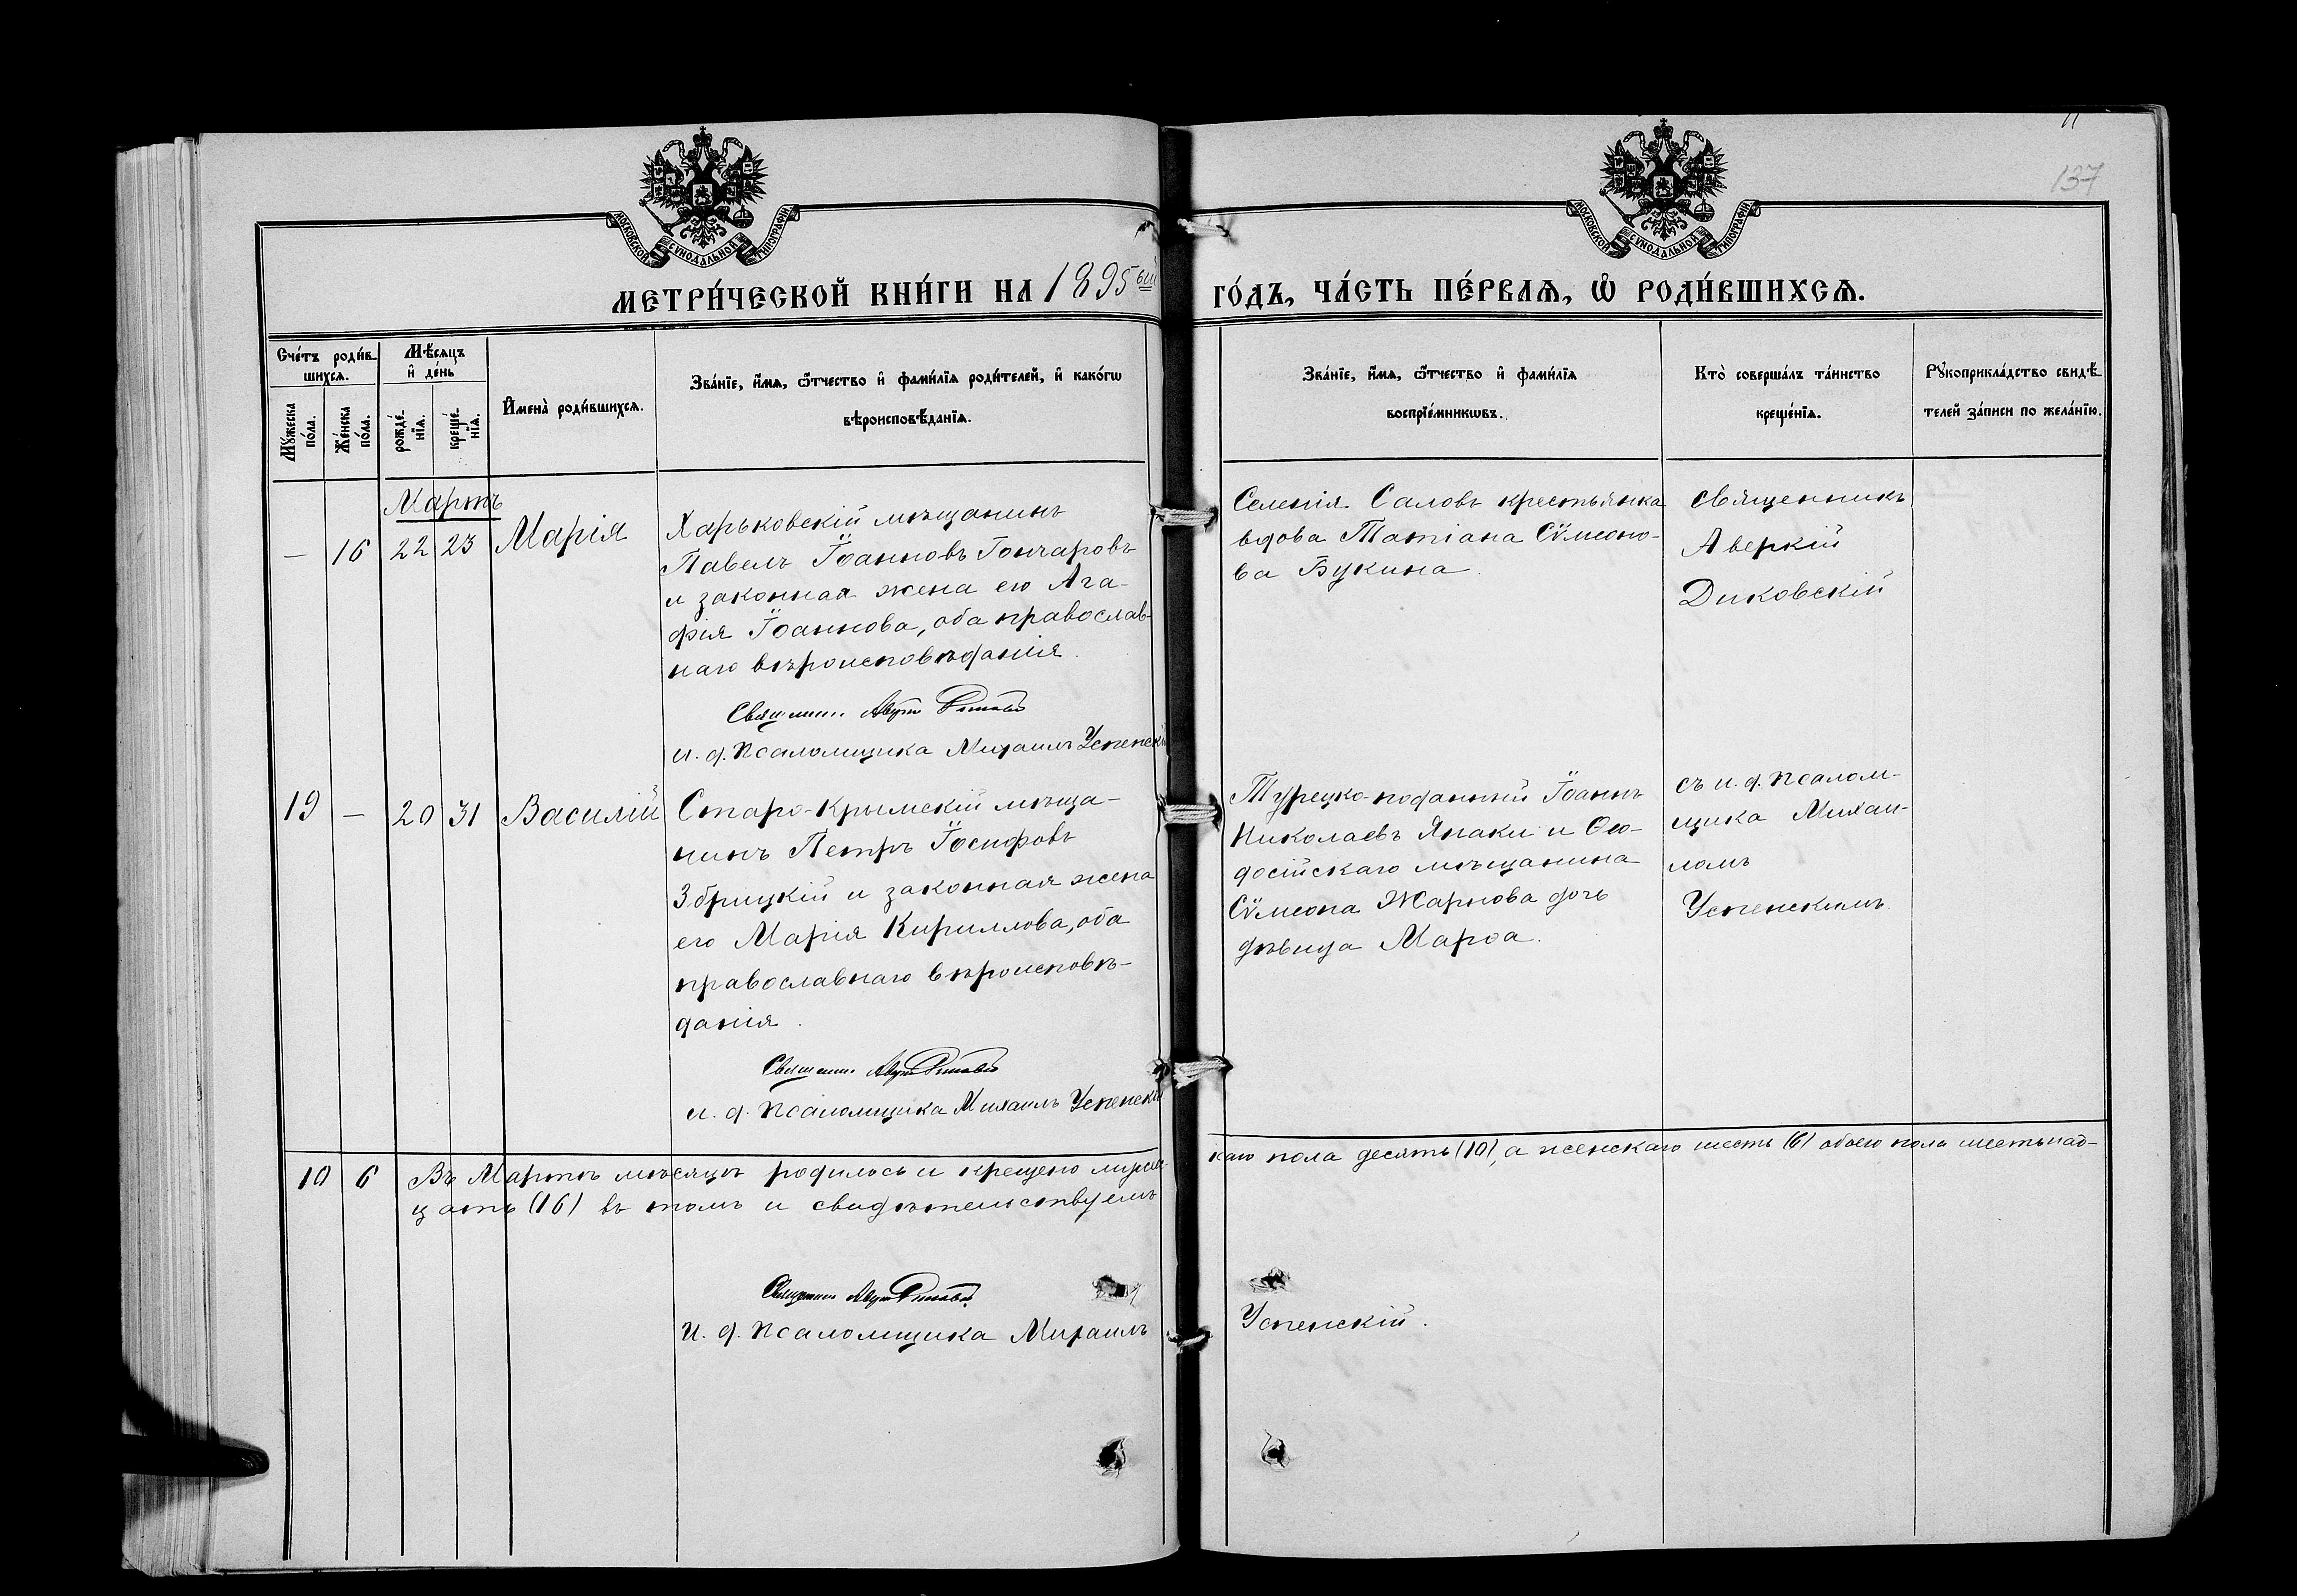 11
137
МОСКОВСКОЙ СѴНОДАЛЬНОЙ ТИПОГРАФІИ
МОСКОВСКОЙ СѴНОДАЛЬНОЙ ТИПОГРАФІИ
МЕТРИ́ЧЕСКОЙ КНИ́ГИ НА 1895ый ГО́ДЪ, ЧА́СТЬ ПЕ́РВАѦ, Ѡ҆ РОДИ́ВШИХСѦ.
Сче́тъ роди́в-
шихсѧ.
Мꙋ́жеска по́ла.
Же́нска по́ла.
Мѣ́сѧцъ
и҆ де́нь
рожде́-нїѧ.
креще́-нїѧ.
И҆мена̀ роди́вшихсѧ.
Зва́нїе, и҆́мѧ, ѻ҆́тчество и҆ фами́лїѧ роди́телей, и҆ како́гѡ
вѣроисповѣ́данїѧ.
Зва́нїе, и҆́мѧ, ѻ҆́тчество и҆ фами́лїѧ
воспрїе́мникѡвъ.
Кто̀ соверша́лъ та́инство
креще́нїѧ.
Рꙋкоприкла́дство свидѣ́-
телей за́писи по жела́нїю.
Мартъ
— 16 22 23 Марія
Харьковскій мѣщанинъ
Павелъ Іоанновъ Гончаровъ
и законная жена его Ага-
фія Іоаннова, оба православ-
наго вѣроисповѣданія.
Священн.
и. д. Псаломщика Михаилъ Успенскій
Селенія Саловъ крестьянка
вдова Татіана Сѵмеоно-
ва Букина.
Священникъ
Аверкій
Диковскій
19 — 20 31 Василій
Старо-Крымскій мѣща-
нинъ Петръ Іосифовъ
Збрицкій и законная жена
его Марія Кириллова, оба
православнаго вѣроисповѣ-
данія.
Священн.
и. д. Псаломщика Михаилъ Успенскій
Турецко-подданный Іоаннъ
Николаевъ Янаки и Ѳео-
досійскаго мѣщанина
Сѵмеона Жарнова дочь
дѣвица Марѳа.
съ и. д. псалом-
щика Михаи-
ломъ
Успенскимъ.
10 6 Въ Мартѣ мѣсяцѣ родилось и крещено мужескаго пола десять (10), а женскаго шесть (6) обоего пола шестьнад-
цать (16) въ томъ и свидѣтельствуемъ
Священникъ
И. д. Псаломщика Михаилъ Успенскій.